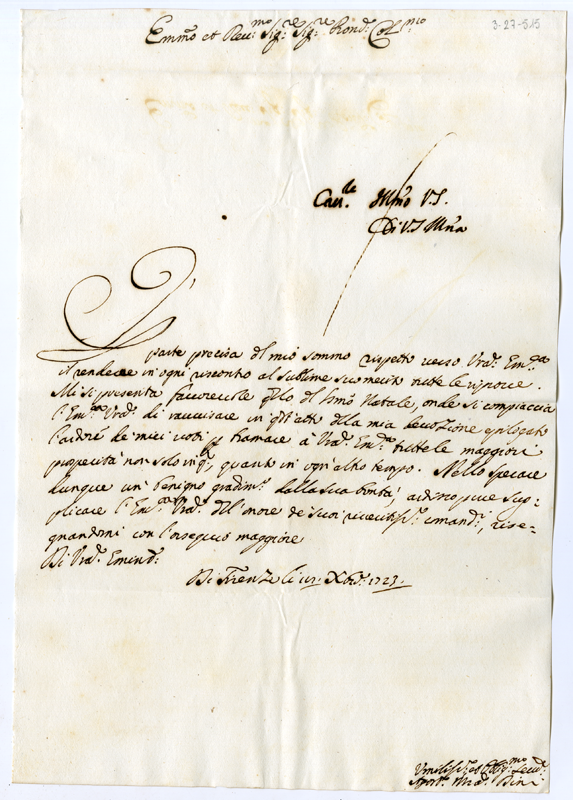 3-27-515
Emmo et Revmo Sigre Sigre Pron. Colmo
Cau.le Illmo V.S.
Di V.S Illma
È parte precisa del mio sommo rispetto verso Vrã. Emza
il rendere in ogni riscontro al sublime suo merito tutte le riprove.
Mi si presenta favorevole qllo del Smo Natale, onde si compiaccia
l'Emza Vrã. di ravvisare in qst'atto della mia devozione epilogato
l'ardre de miei voti per bramare à Vrã. Emza tutte le maggiori
prosperità non solo in qsto, quanto in ogn'altro tempo. Nello sperare
dunque un benigno gradimto dalla sua bontà, ardisco pure sup-
plicare l'Emza Vrã. dell'onore de suoi riveritissmi comandi, rasse-
gnandomi con l'ossequio maggiore
Di Vrã. Eminza
Di Firenze li Xbre 1723.
Umiliss. et Serv.
Bini